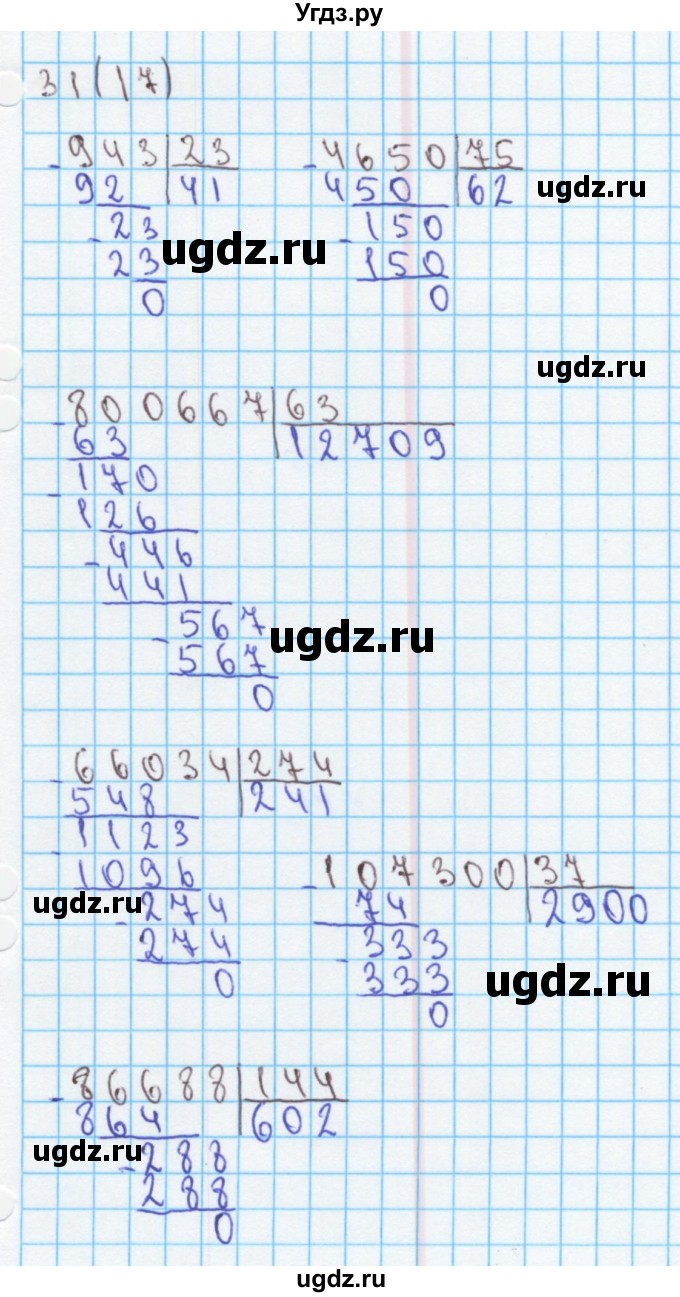 Угдз.ру
31(17)
-943|23
92|41
-23
23
0
-4650|75
450|62
-150
150
0
ugdz.ru
ugdz.ru
ugdz.ru
-800667|63
63|12709
-170
126
-446
441
-567
567
0
ugdz.ru
-66034|274
548|241
-1123
1096
-274
274
0
ugdz.ru
-107300|37
74|2900
-333
333
0
ugdz.ru
-86688|144
864|602
-288
288
0
ugdz.ru
ugdz.ru